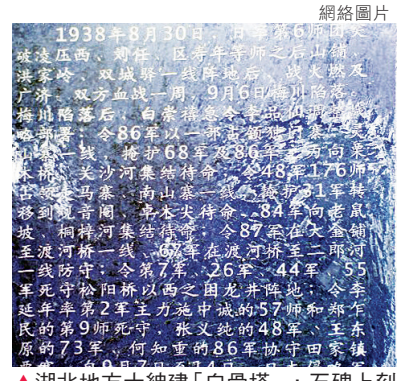 網絡圖片
1938年8月30日,日军第6师团突
破凌压西、刘任、区寿年等师之后山铺、
洪家岭、双城驿一线阵地后,战火燃及
广济、双方血战一周,9月6日梅川陷落。
梅川陷落后,白崇禧急令李品仙调整
略部署:令86军以一部占领独
山寨一线,掩护68军及86军主力向栗
木桥、关沙河集结待命,令48军176师
占领上马寨、南山寨一线,掩护31军转
移到观音阁、草木尖待命,84军向老鼠
坡、桐梓河集结待命,令87军在大金铺
至渡河桥一线、67军在渡河桥至二郎河
一线防守;令第7军、26军、44军、55
军死守松阳桥以西之困龙井阵地;令李
延年率第2军王力施中诚的57师和郑乍
民的第9师死守,张义纯的48军、王东
原的73军、何知重的86军协守田家镇
自9月7日
▲湖北地方士紳建「白骨塔」,石碑上刻